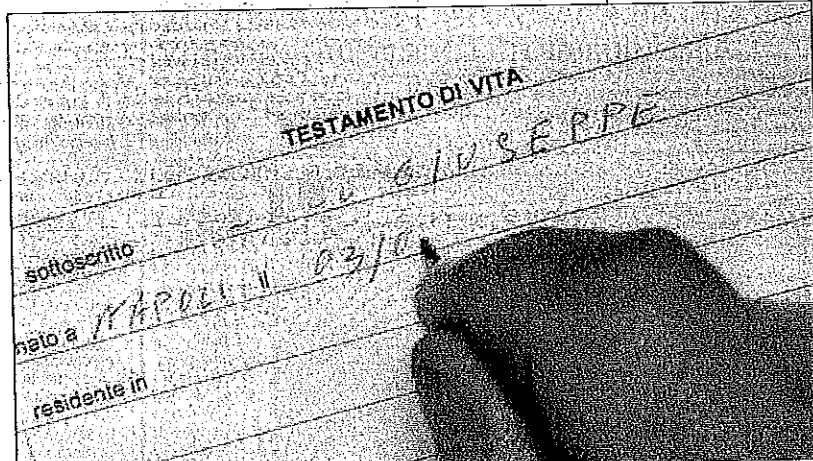 TESTAMENTO DI VITA
sottoscritto GIUSEPPE
nato a NAPOLI il 03/0
residente in